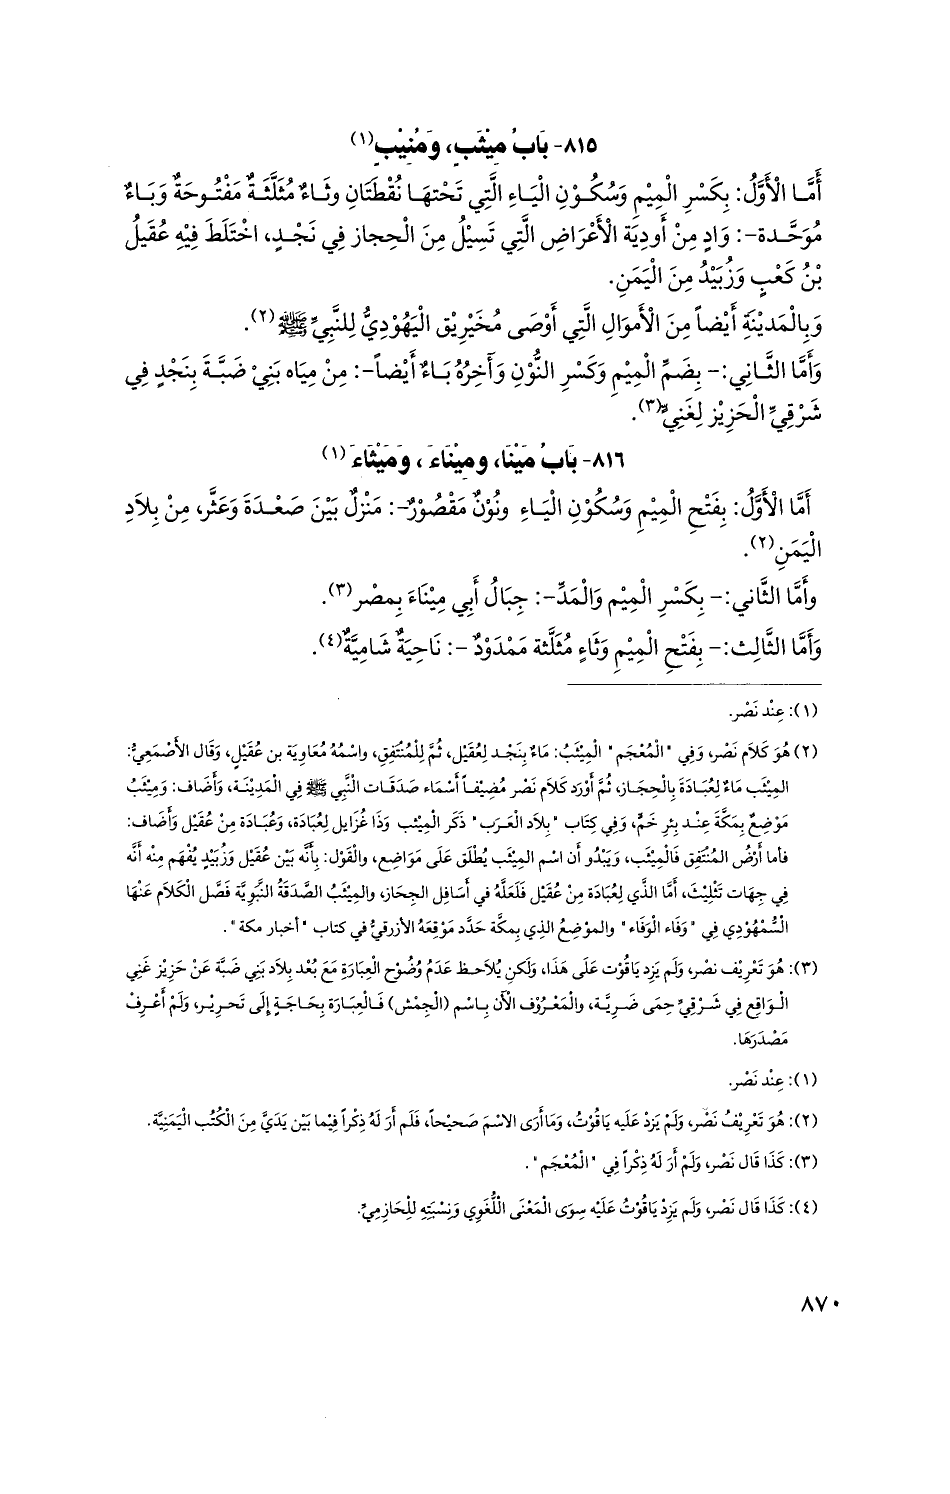 ٨١٥- بَابُ مِيْثَبٍ، وَمُنِيْبٍ(١)
أَمَّا الْأَوَّلُ: بِكَسْرِ الْمِيْمِ وَسُكُوْنِ الْيَاءِ الَّتِي تَحْتهَا نُقْطَتَانِ وثَاءٌ مُثلَّثَةٌ مَفْتُوحَةٌ وَبَاءٌ
مُوَحَّدة-: وَادٍ مِنْ أَودِيَة الْأَعْرَاضِ الَّتِي تَسِيْلُ مِنَ الْحِجازِ فِي نَجْدٍ، اخْتَلَطَ فِيْهِ عُقَيلُ
بْنُ كَعْبٍ وَزُبَيْدُ مِنَ الْيَمَنِ.
وَبِالْمَدِيْنَةِ أَيْضاً مِنَ الْأَموَالِ الَّتِي أَوْصَى مُخَيرِيق الْيَهُوْدِيُّ لِلنَّبِيِّ ﷺ(٢).
وَأَمَّا الثَّانِي:- بِضَمِّ الْمِيْمِ وَكَسْرِ النُّوْنِ وَآخِرُهُ بَاءٌ أَيْضاً-: مِنْ مِيَاه بَنِيْ ضَبَّةَ بِنَجْدٍ فِي
شَرْقِيِّ الْحَزِيْزِ لِغَنِيٍّ(٣).
٨١٦- بَابُ مَيْنَا، ومِيْنَاءَ، وَمَيْثَاءَ(١)
أَمَّا الْأَوَّلُ: بِفَتْحِ الْمِيْمِ وَسُكُوْنِ الْيَاءِ ونُوْنٌ مَقْصُوْرٌ-: مَنْزِلٌ بَيْنَ صَعْدَةَ وَعَثَّر، مِنْ بِلاَدِ
الْيَمَنِ(٢).
وأَمَّا الثَّاني:- بِكَسْرِ الْمِيْم وَالْمَدِّ-: جِبَالُ أَبِي مِيْنَاءَ بِمِصْر(٣).
وَأَمَّا الثَّالِث:- بِفَتْحِ الْمِيْمِ وَثَاءٍ مُثلَّثة مَمْدَوْدٌ -: نَاحِيَةٌ شَامِيَّةٌ(٤).
(١): عِنْد نَصْر.
(٢) هُوَ كَلاَم نَصْر، وَفِي "الْمُعْجَم" الْمِيْثَبُ: مَاءٌ بِنَجْد لِعُقَيْل، ثُمَّ لِلْمُنْتَفِقِ، واسْمُهُ مُعَاوِيَة بن عُقَيْلٍ، وَقَال الأَصْمَعِيُّ:
الْمِيْثَب مَاءٌ لِعُبَادَةَ بِالْحِجَاز، ثُمَّ أَوْرَد كَلاَمَ نَصْر مُضِيْفاً أَسْمَاء صَدَقَات النَّبِيِّ ﷺ فِي الْمَدِيْنَة، وَأَضَاف: وَمِيْثَبُ
مَوْضِعٌ بِمَكَّةَ عِنْد بِئرِ خُمٍّ، وَفِي كِتَاب "بِلاَد الْعَرَب" ذَكَر الْمِيْثب وَذَا غُزَايِل لِعُبَادَة، وَعُبَادَة مِنْ عُقَيْل وَأَضَاف:
فأما أَرْضُ الْمُنْتَفِق فَالْمِيْثَب، وَيَبْدُو أَن اسْم الْمِيْثَب يُطْلَق عَلَى مَوَاضِع، والْقَوْل: بِأَنَّه بَيْن عُقَيْل وَزُبَيْدٍ يُفْهَم مِنْه أَنَّه
فِي جِهَات تَثْلِيْث، أَمَّا الَّذي لِعُبَادَة مِنْ عُقَيْل فَلَعَلَّهُ في أَسَافِل الحِجَاز، والمِيْثَبُ الصَّدَقَةُ النَّبَوِيَّة فَصَّل الْكَلاَم عَنْهَا
السَّمْهُوْدي فِي "وَفَاء الْوَفَاء" والموْضِعُ الذي بِمكَّة حَدَّد مَوْقِعَهُ الأزرقيُّ في كتاب "أخبار مكة".
(٣): هُوَ تَعْرِيْف نصْر، وَلَم يَزِد يَاقُوْت عَلَى هَذَا، وَلَكِن يُلاَحظ عَدَمُ وُضُوْح الْعِبَارَة مَعَ بُعْد بِلاَد بَنِي ضَبَّة عَنْ حَزِيْز غَنِي
الْوَاقِع فِي شَرْقِيِّ حِمَى ضَرِيَّة، والْمَعْرُوْف الْآن بِاسْم (الْجِمْش) فَالْعِبَارَة بِحَاجَةٍ إِلَى تَحرِيْر، وَلَمْ أَعْرِفْ
مَصْدَرَهَا.
(١): عِنْد نَصْر.
(٢): هُوَ تَعْرِيْفُ نَصْر، وَلَمْ يَزدْ عَلَيه يَاقُوْتُ، وَمَا أَرَى الاسْمَ صَحِيْحاً، فَلَم أَر لَهُ ذِكْراً فِيْما بَيْن يَدَيَّ مِنَ الْكُتُب الْيَمَنِيَّة.
(٣): كَذَا قَال نَصْر، وَلَمْ أَرَ لَهُ ذِكْراً فِي "الْمُعْجَم".
(٤): كَذَا قَال نَصْر، وَلَم يَزِدْ يَاقُوْتُ عَلَيْه سِوَى الْمَعْنَى اللُّغَوِي وَنِسْبَتِهِ لِلْحَازِمِيِّ.
٨٧٠